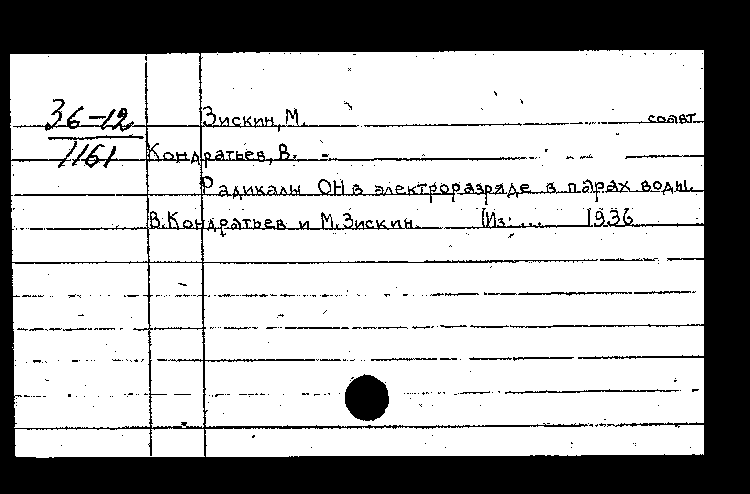 36-12
1161
Зискин, М. соавт.
Кондратьев, В. -
Радикалы ОН в электроразряде в парах воды.
В.Кондратьев и М.Зискин. Из: ... 1936